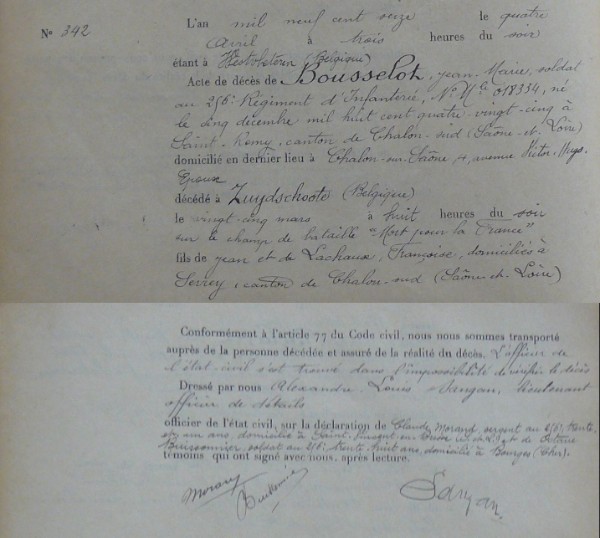 No 342
L'an mil neuf cent seize le quatre
Avril à trois heures du soir
étant à Westvleteren (Belgique)
Acte de décès de Bousselot, Jean-Marie, soldat
au 256e Régiment d'Infanterie, No Mle 018334, né
le cinq décembre mil huit cent quatre-vingt-cinq à
Saint-Remy, canton de Chalon-sud (Saône-et-Loire)
domicilié en dernier lieu à Chalon-sur-Saône 4, avenue Victor Hugo
Epoux
décédé à Zuydschoote (Belgique)
le vingt-cinq mars à huit heures du soir
sur le champ de bataille "Mort pour la France"
fils de Jean et de Lachaux, Françoise, domiciliés à
Sevrey, canton de Chalon-sud (Saône-et-Loire)
Conformément à l'article 77 du Code civil, nous nous sommes transporté
auprès de la personne décédée et assuré de la réalité du décès. L'officier de
l'état-civil s'est trouvé dans l'impossibilité de vérifier le décès
Dressé par nous Alexandre Louis lieutenant
officier de détails
officier de l'état civil, sur la déclaration de Claude Morand, sergent au 256e, trente
un ans, domicilié à Saint- et de
soldat au 256e, trente-huit ans, domicilié à Bourges (Cher).
témoins qui ont signé avec nous, après lecture.
Morand